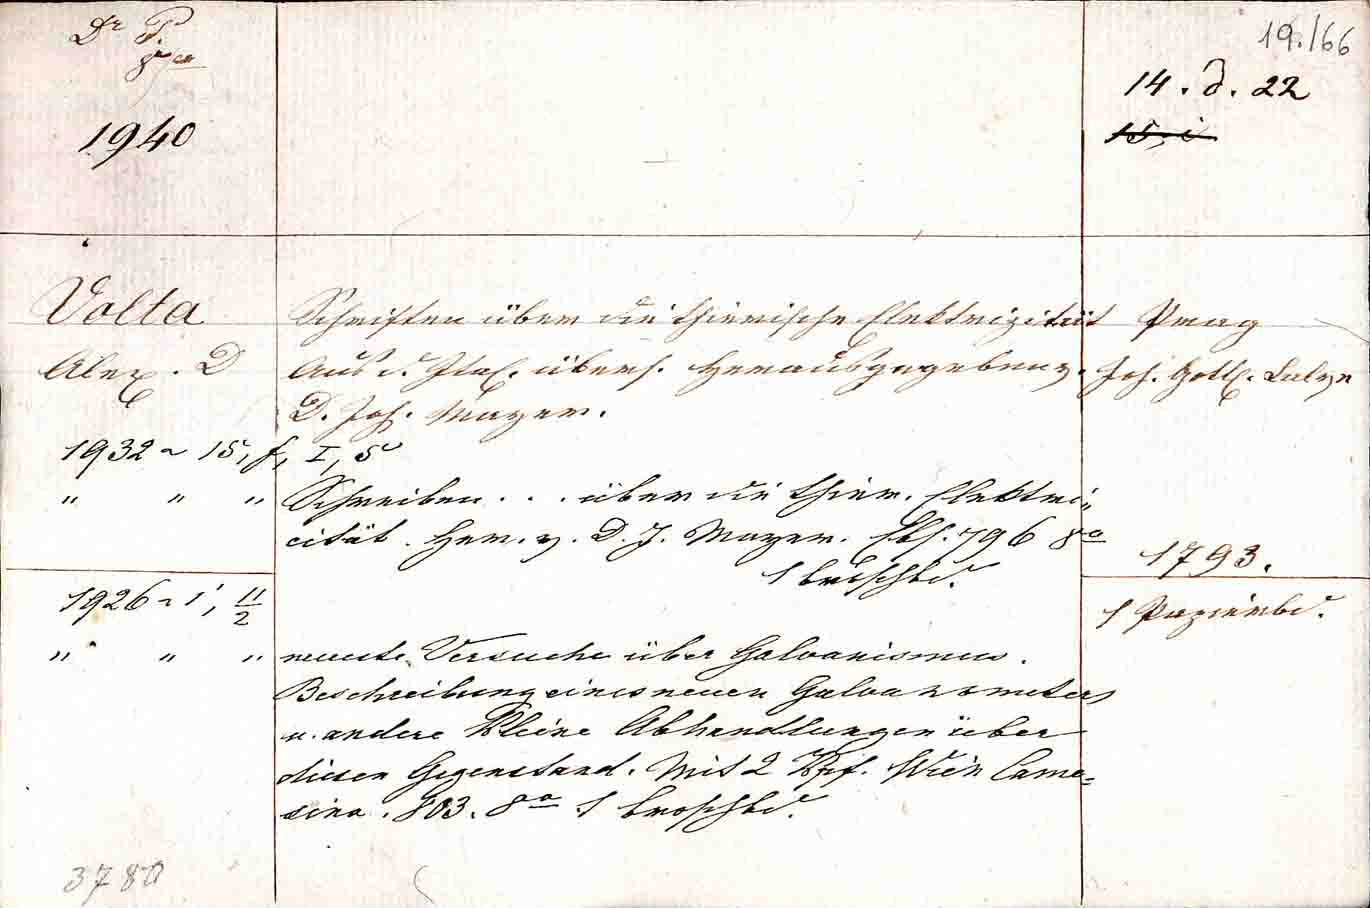 Dr P.
19./66
14. d. 22
1940
15, i
Volta
Schriften über die thierische Elektrizität
Prag
Alex. D
Aus d. Ital. übers. Herausgegeben v.
Joh. Gottf. Calve
D. Joh. Mayer.
1932 ~ 15, f, I, 5
" " " Schreiben . . . über die thier. Elektri-
cität. Her. v. D. J. Mayer. Ebd. 796 8o
1793.
1 broschbd.
1926 ~ i, 11/2
1 Papierbd.
" " " neueste Versuche über Galvanismus.
Beschreibung eines neuen Galvanometers
u. andere kleine Abhandlungen über
diesen Gegenstand. Mit 2 Kpf. Wien Came-
sina. 803. 8o 1 broschbd.
3780